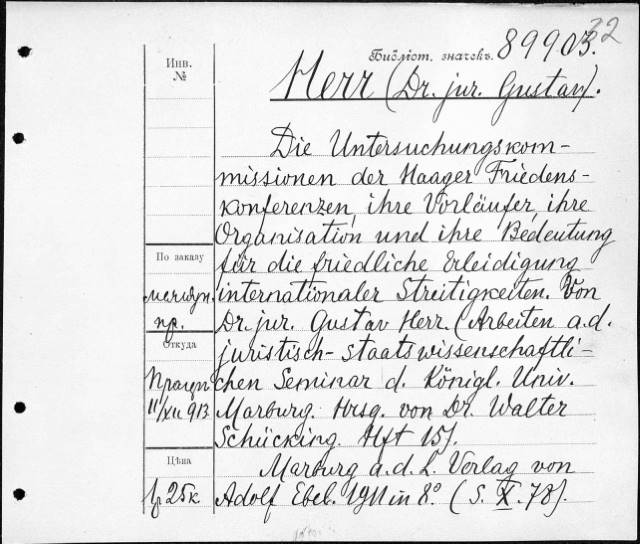 22
Библіот. значекъ. 89903.
Инв.
№
Herr (Dr. jur. Gustav).
Die Untersuchungskom-
missionen der Haager Friedens-
konferenzen, ihre Vorläufer, ihre
Organisation und ihre Bedeutung
für die friedliche Erleidigung
internationaler Streitigkeiten. Von
Dr. jur. Gustav Herr. (Arbeiten a. d.
juristisch-staatswissenschaftli-
chen Seminar d. Königl. Univ.
Marburg. Hrsg. von Dr. Walter
Schücking. Hft 15).
Marburg a. d. L. Verlag von
Adolf Ebel. 1911 in 8° (S. X. 78).
По заказу
пр.
Откуда
11/XII 913
Цѣна
25к